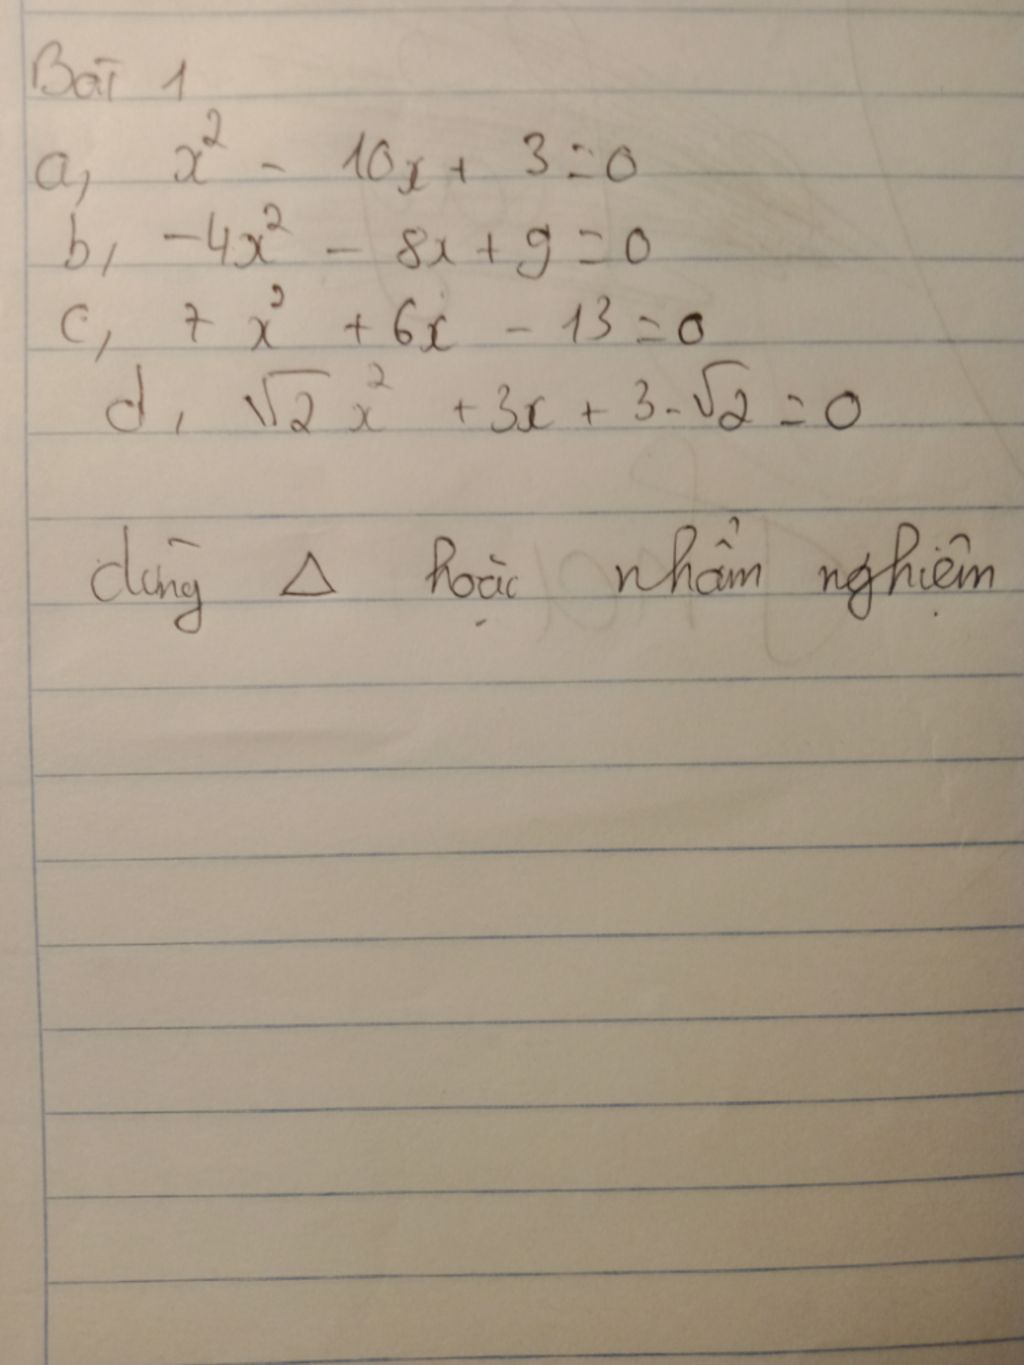 Bài 1
a, x² - 10x + 3 = 0
b, -4x² - 8x + 9 = 0
c, 7x² + 6x - 13 = 0
d, √2x² + 3x + 3 - √2 = 0
dùng Δ hoặc nhẩm nghiệm